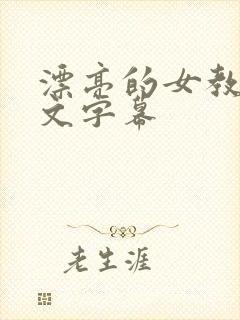 漂亮的女教
文字幕
老生涯